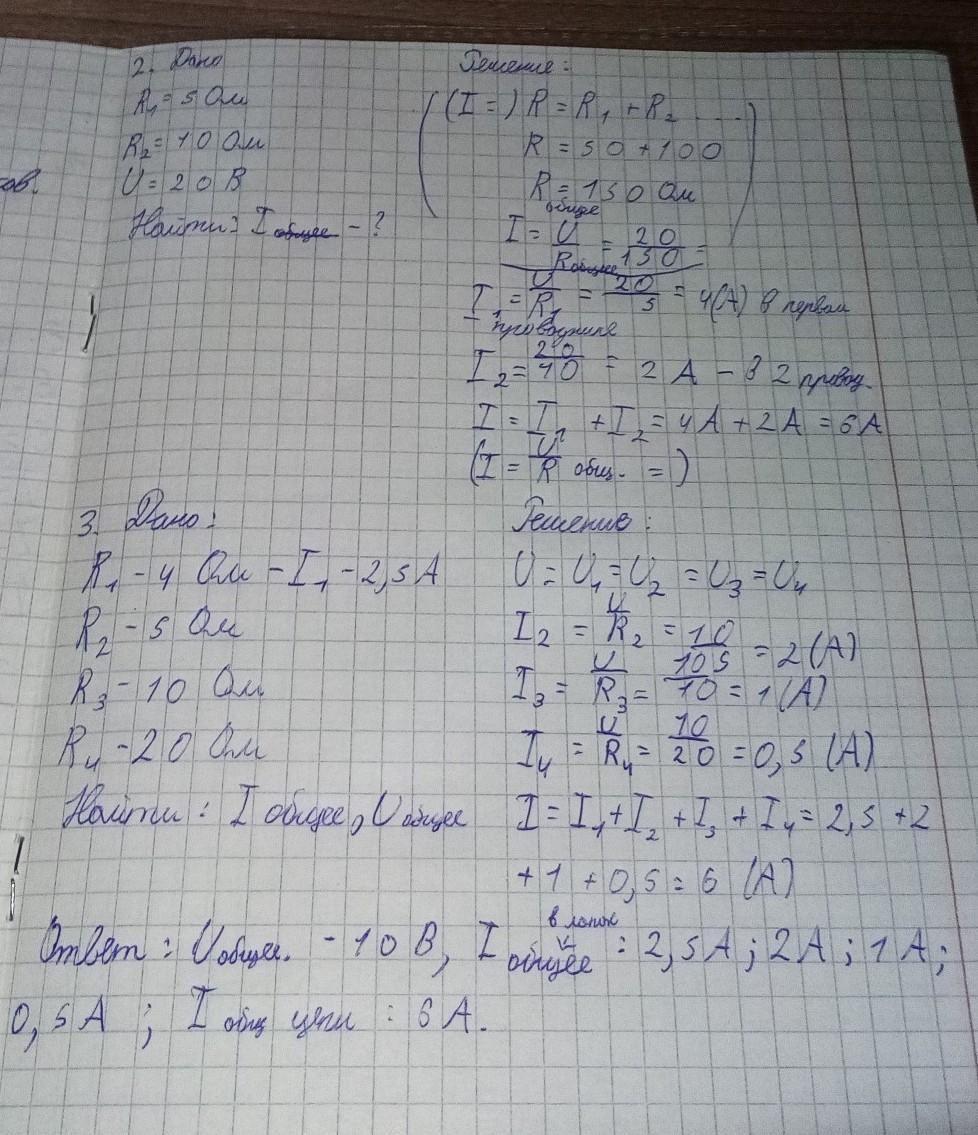 2. Дано
R₁ = 5 Ом
R₂ = 10 Ом
U = 20 В
Найти: I общее - ?
Решение:
(I = ) R = R₁ + R₂ ....
R = 50 + 100
R общее = 150 Ом
I = U/R общее = 20/150 =
I₁ = U/R₁ = 20/5 = 4(А) в первом
проводнике
I₂ = 20/10 = 2 А - в 2 провод.
I = I₁ + I₂ = 4А + 2А = 6А
(I = U/R общ. = )
3. Дано:
R₁ - 4 Ом - I₁ - 2,5А
R₂ - 5 Ом
R₃ - 10 Ом
R₄ - 20 Ом
Найти: I общее, U общее
Решение:
U = U₁ = U₂ = U₃ = U₄
I₂ = U/R₂ = 10/105 = 2(А)
I₃ = U/R₃ = 10 = 1(А)
I₄ = U/R₄ = 10/20 = 0,5 (А)
I = I₁ + I₂ + I₃ + I₄ = 2,5 + 2
+ 1 + 0,5 = 6 (А)
Ответ: U общее. - 10 В, I общее : 2,5А; 2А; 1А;
0,5А ; I общ цепи : 6А.